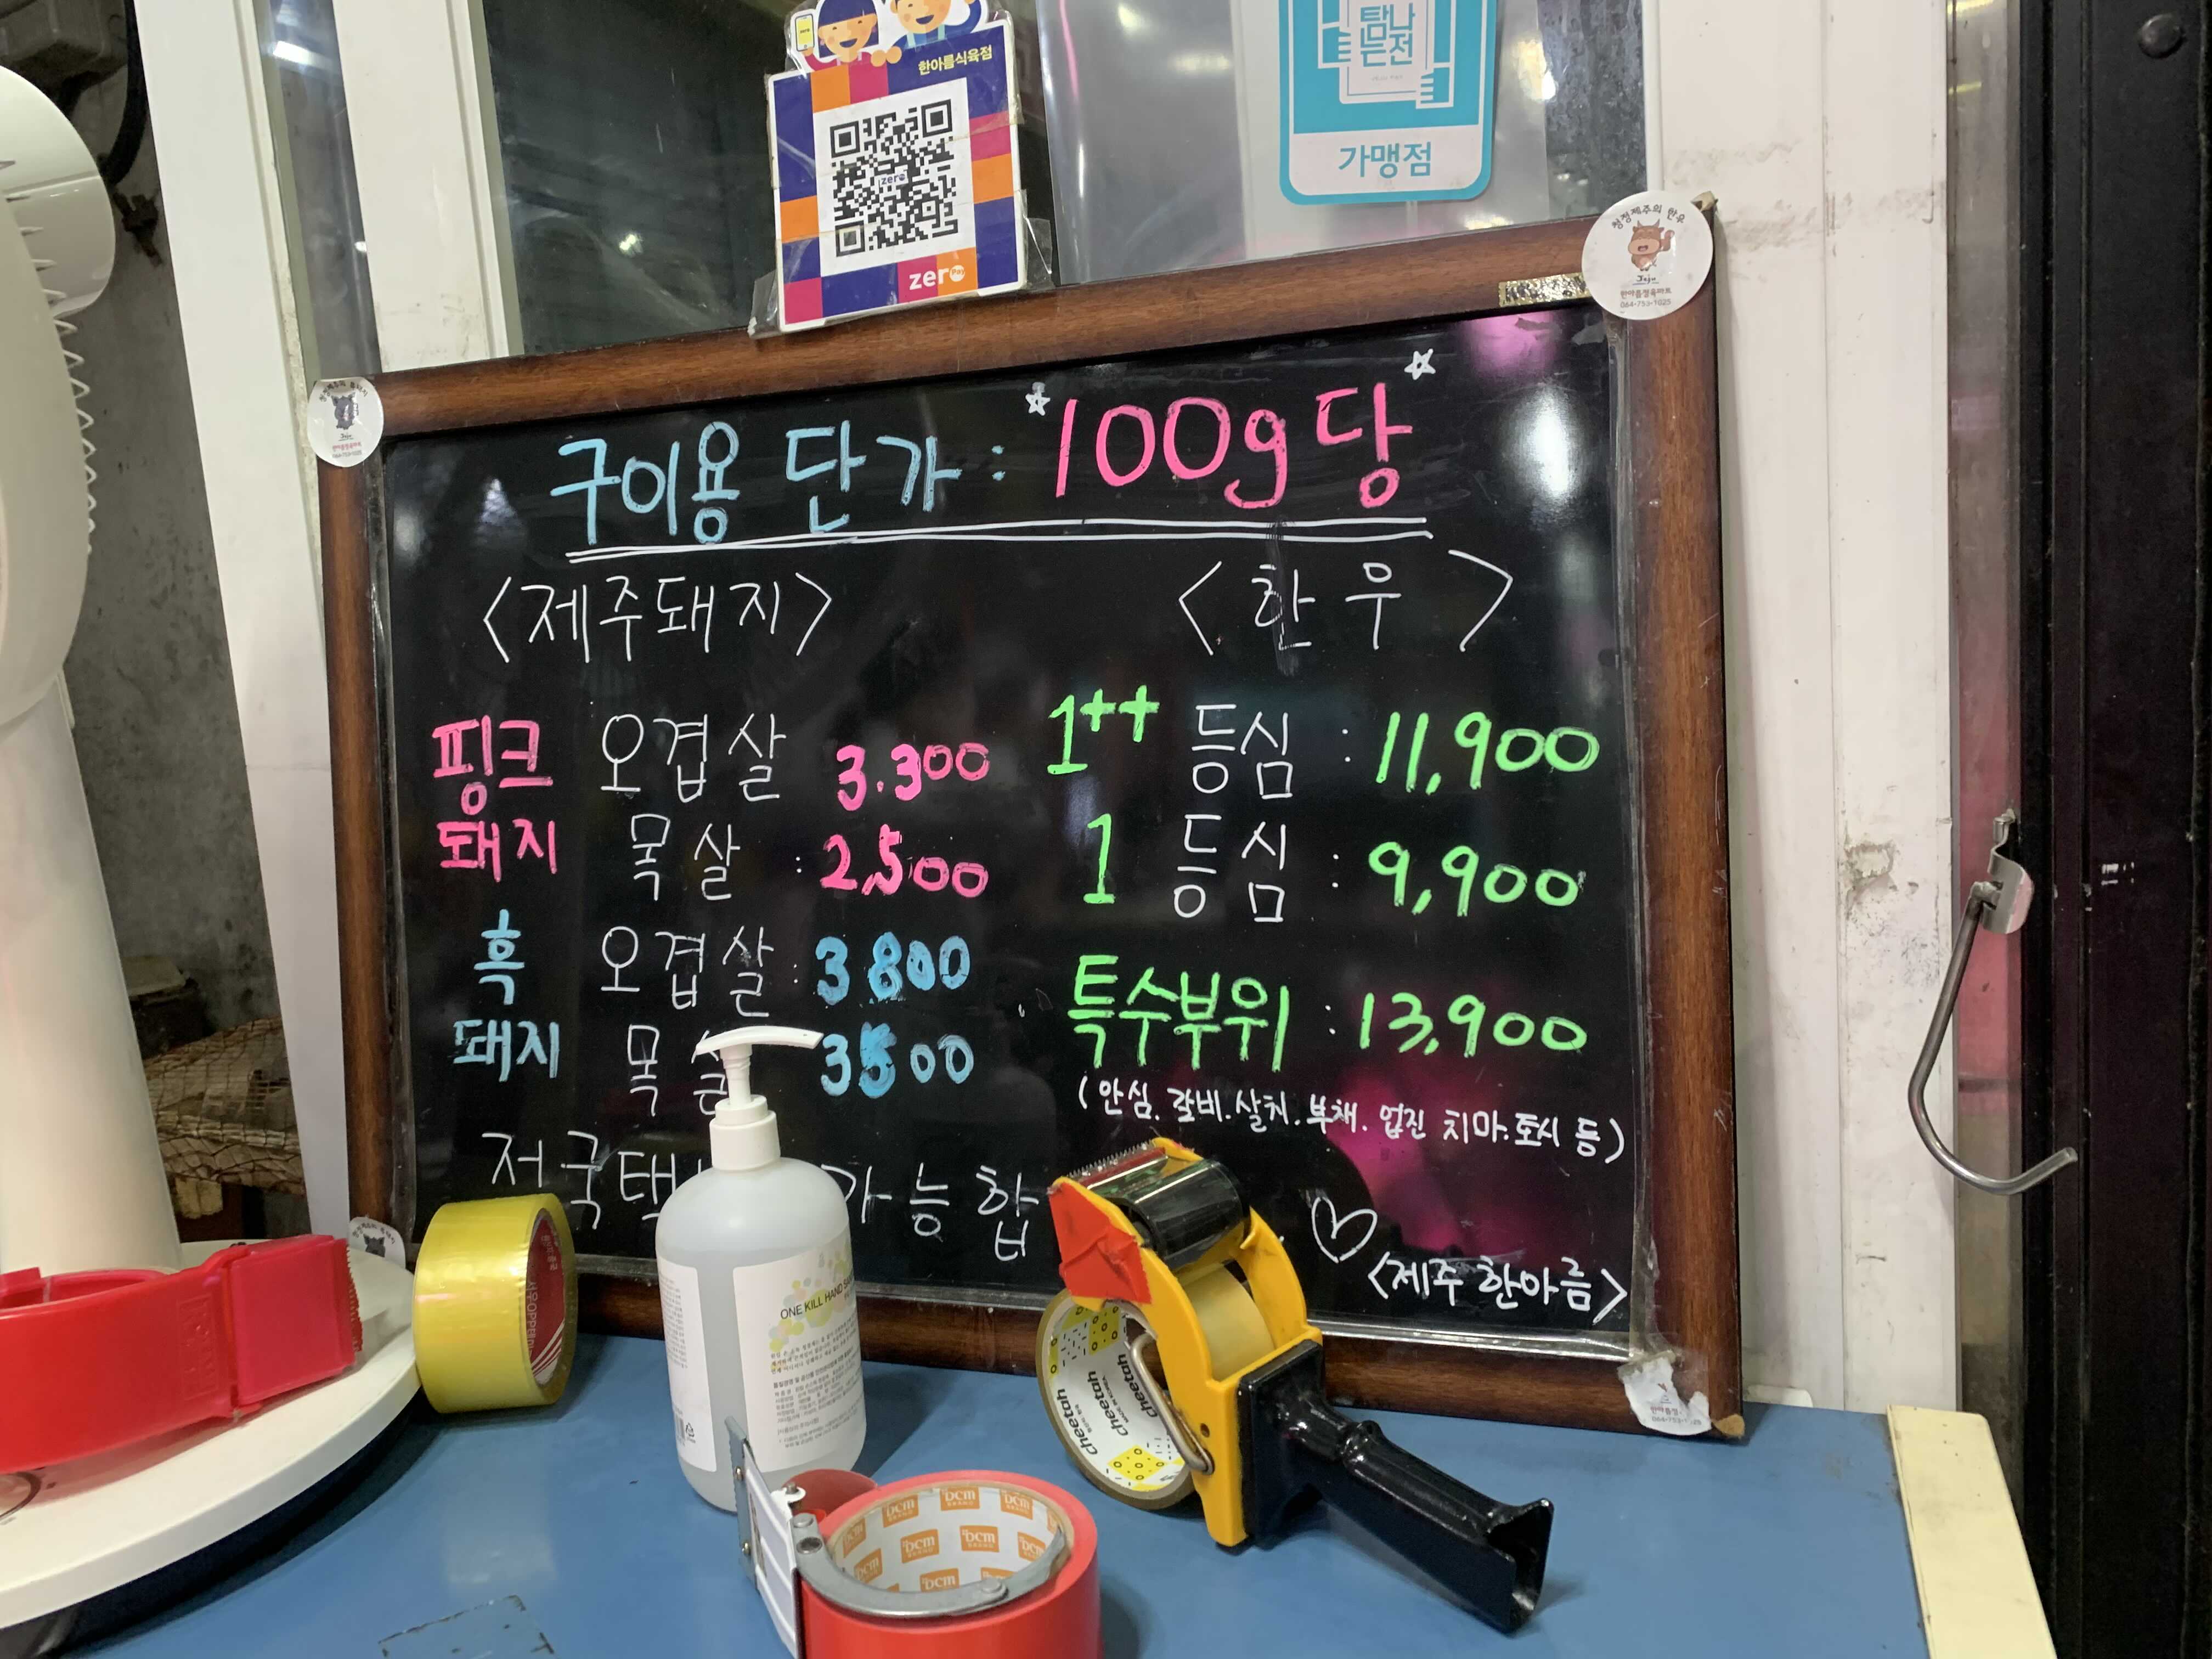 한아름식육점
zero
zero Pay
탐나
는전
가맹점
청정제주의 한우
Jeju
한아름정육마트
064-753-1025
구이용 단가 : 100g당
<제주돼지>
<한우>
핑크 돼지
오겹살 3.300
목살 : 2,500
흑 돼지
오겹살 : 3800
목살 3500
1++ 등심 : 11,900
1 등심 : 9,900
특수부위 : 13,900
(안심. 갈비. 살치. 부채. 업진 치마. 토시 등)
전국택 가능합
<제주 한아름>
ONE KILL HAND
cheetah
cheetah
cheetah
MADE IN KOREA
DCM
DCM
DCM
DCM
DCM
DCM